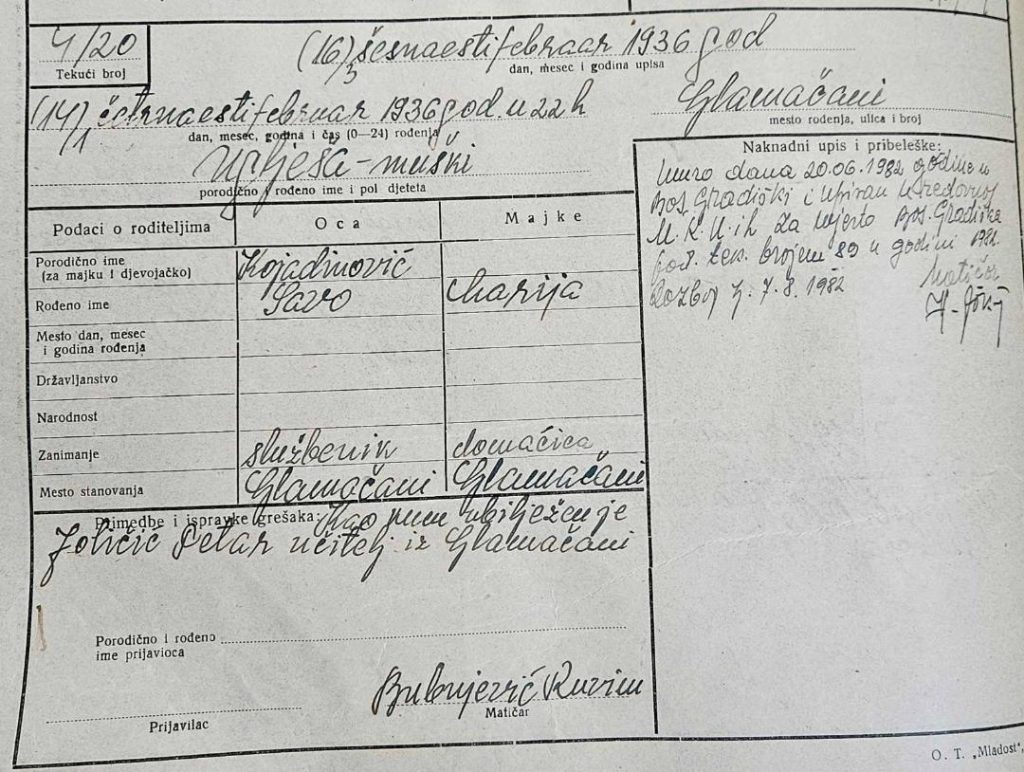 4/20
Tekući broj
(16)/3 šesnaesti februar 1936 god
dan, mesec i godina upisa
(14)/1 četrnaesti februar 1936 god. u 22 h
dan, mesec, godina i čas (0—24) rođenja
Glamačani
mesto rođenja, ulica i broj
Uglješa - muški
porodično i rođeno ime i pol djeteta
Podaci o roditeljima
Oca
Majke
Porodično ime
(za majku i djevojačko)
Kojadinović
Rođeno ime
Savo
Marija
Mesto dan, mesec
i godina rođenja
Državljanstvo
Narodnost
Zanimanje
službenik
domaćica
Mesto stanovanja
Glamačani
Glamačani
Naknadni upis i pribeleške:
Umro dana 20.06.1982 godine u
Bos. Gradiški i upisan u redovnoj
M.K.U.ih za mjesto Bos. Gradiška
pod. tek. brojem 89 u godini 1982.
7.8.1982
Matičar
Primedbe i ispravke grešaka: Kao kum ubilježen je
Petar učitelj iz Glamačani
Porodično i rođeno
ime prijavioca
Prijavilac
Bubnjević Ruvim
Matičar
O. T. „Mladost",